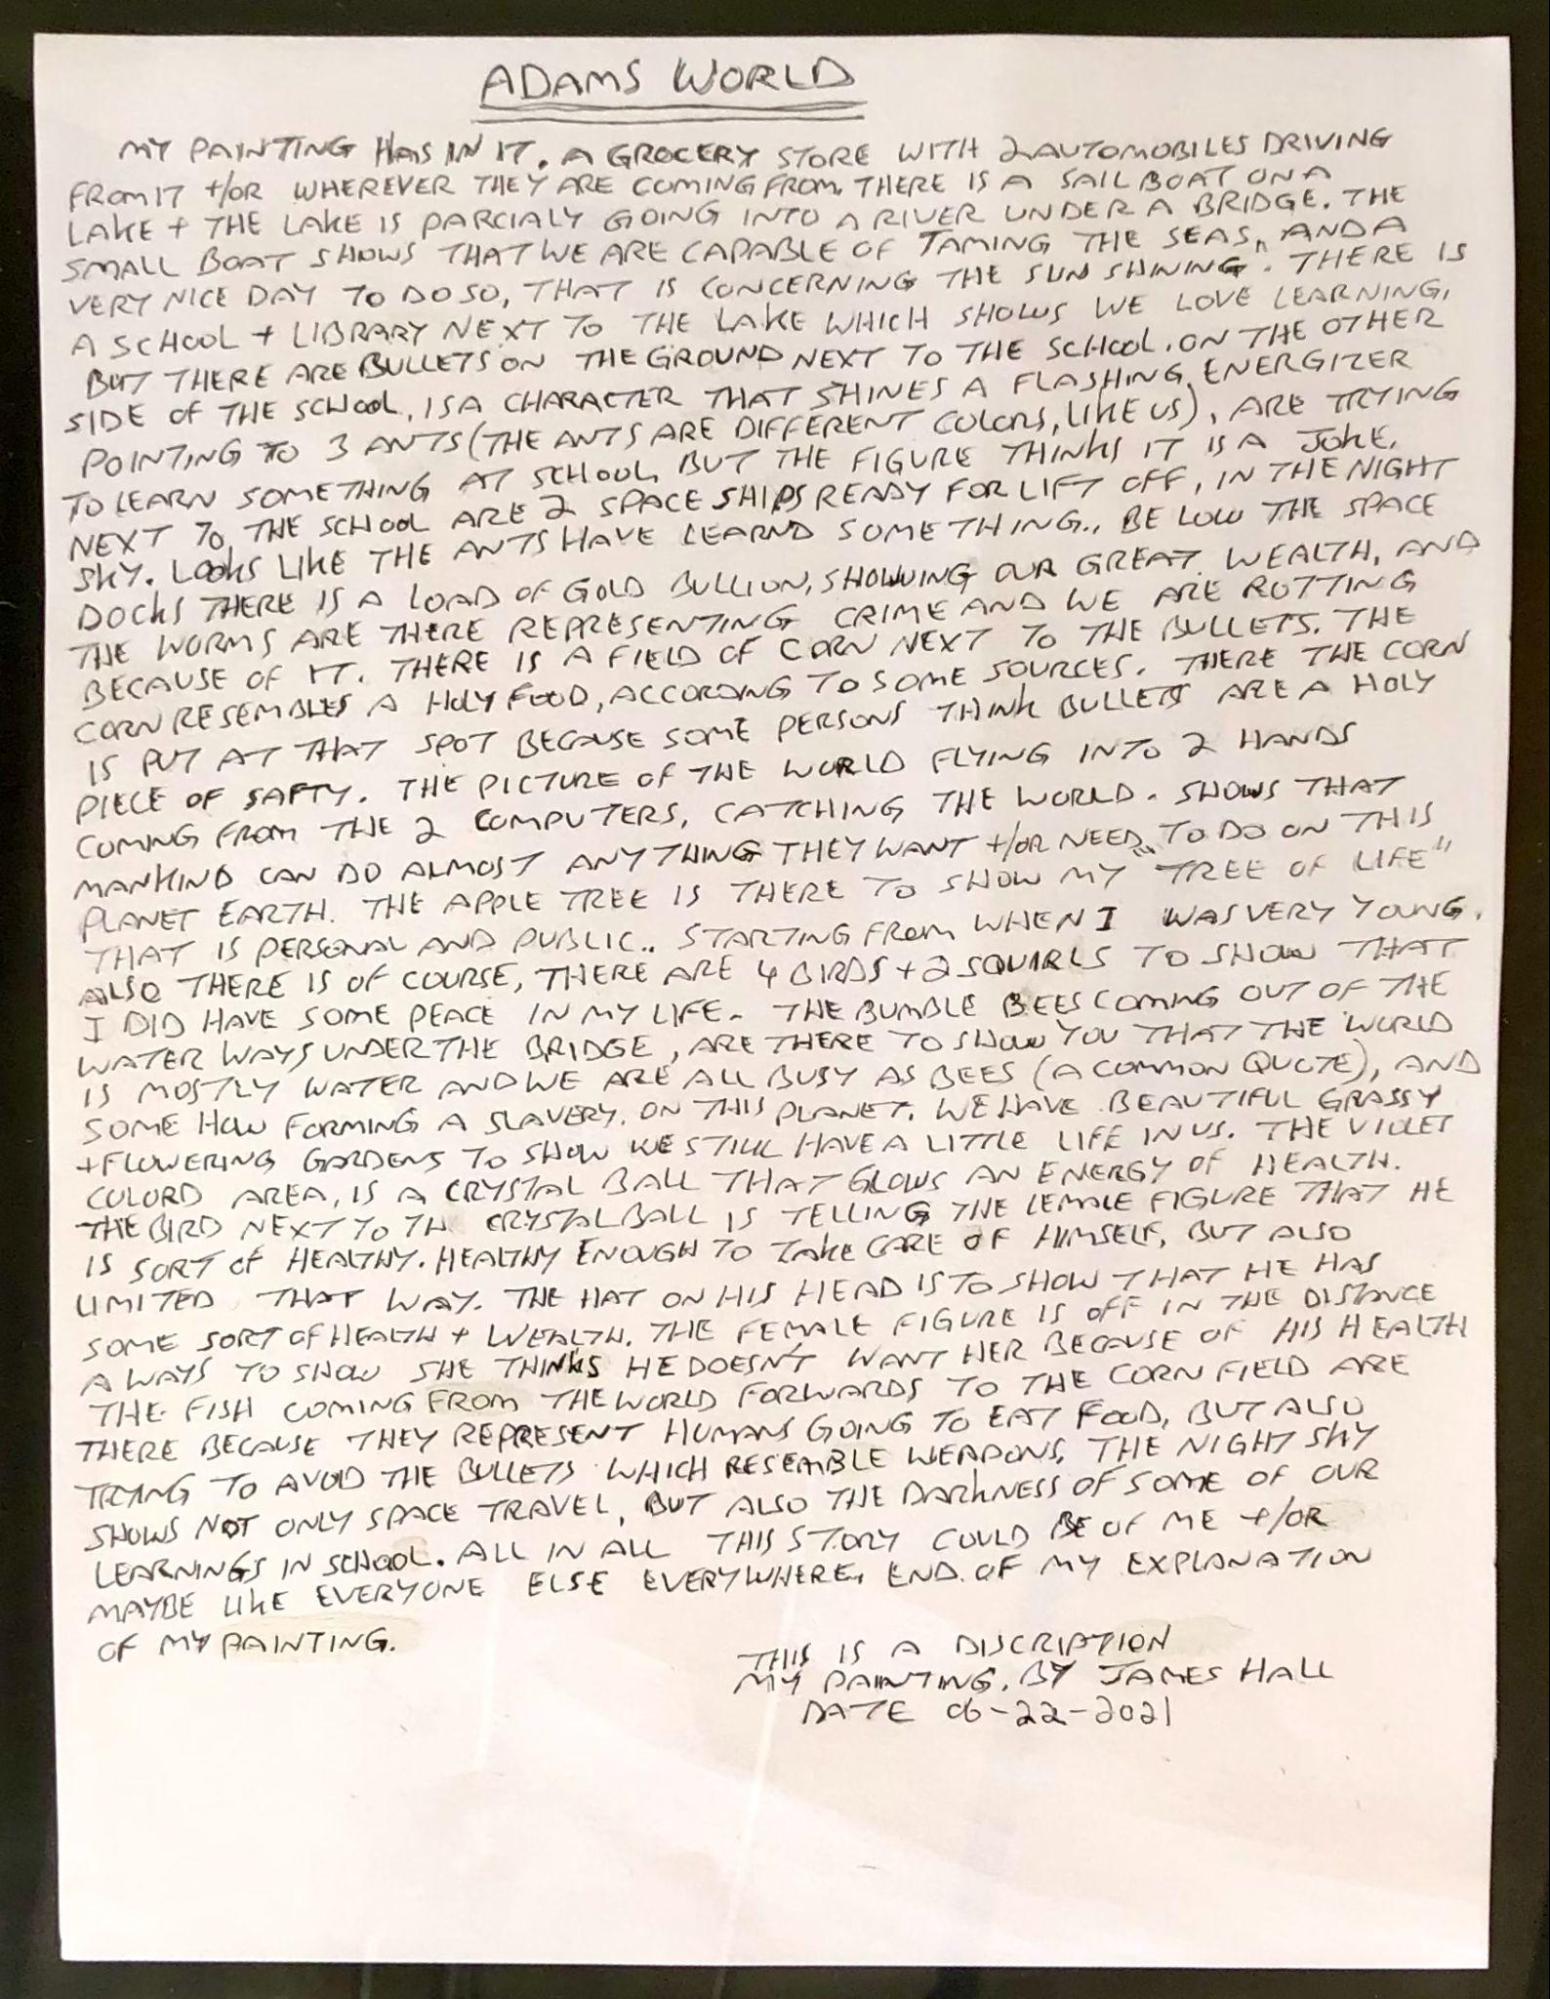 ADAMS WORLD
MY PAINTING HAS IN IT. A GROCERY STORE WITH 2 AUTOMOBILES DRIVING
FROM IT +/OR WHEREVER THEY ARE COMING FROM. THERE IS A SAIL BOAT ON A
LAKE + THE LAKE IS PARCIALY GOING INTO A RIVER UNDER A BRIDGE. THE
SMALL BOAT SHOWS THAT WE ARE CAPABLE OF TAMING THE SEAS, AND A
VERY NICE DAY TO DO SO, THAT IS CONCERNING THE SUN SHINING". THERE IS
A SCHOOL + LIBRARY NEXT TO THE LAKE WHICH SHOWS WE LOVE LEARNING,
BUT THERE ARE BULLETS ON THE GROUND NEXT TO THE SCHOOL. ON THE OTHER
SIDE OF THE SCHOOL, IS A CHARACTER THAT SHINES A FLASHING ENERGIZER
POINTING TO 3 ANTS (THE ANTS ARE DIFFERENT COLORS, LIKE US), ARE TRYING
TO LEARN SOMETHING AT SCHOOL, BUT THE FIGURE THINKS IT IS A JOKE.
NEXT TO THE SCHOOL ARE 2 SPACE SHIPS READY FOR LIFT OFF, IN THE NIGHT
SKY. LOOKS LIKE THE ANTS HAVE LEARND SOMETHING.. BE LOW THE SPACE
DOCKS THERE IS A LOAD OF GOLD BULLION, SHOWING OUR GREAT WEALTH, AND
THE WORMS ARE THERE REPRESENTING CRIME AND WE ARE ROTTING
BECAUSE OF IT. THERE IS A FIELD OF CORN NEXT TO THE BULLETS. THE
CORN RESEMBLES A HOLY FOOD, ACCORDING TO SOME SOURCES. THERE THE CORN
IS PUT AT THAT SPOT BECAUSE SOME PERSONS THINK BULLETS ARE A HOLY
PIECE OF SAFTY. THE PICTURE OF THE WORLD FLYING INTO 2 HANDS
COMING FROM THE 2 COMPUTERS, CATCHING THE WORLD. SHOWS THAT
MANKIND CAN DO ALMOST ANYTHING THEY WANT +/OR NEED TO DO ON THIS
PLANET EARTH. THE APPLE TREE IS THERE TO SHOW MY "TREE OF LIFE"
THAT IS PERSONAL AND PUBLIC.. STARTING FROM WHEN I WAS VERY YOUNG.
ALSO THERE IS OF COURSE, THERE ARE 4 BIRDS + 2 SQUIRLS TO SHOW THAT
I DID HAVE SOME PEACE IN MY LIFE. THE BUMBLE BEES COMING OUT OF THE
WATER WAYS UNDER THE BRIDGE, ARE THERE TO SHOW YOU THAT THE WORLD
IS MOSTLY WATER AND WE ARE ALL BUSY AS BEES (A COMMON QUOTE), AND
SOME HOW FORMING A SLAVERY. ON THIS PLANET. WE HAVE BEAUTIFUL GRASSY
+ FLOWERING GARDENS TO SHOW WE STILL HAVE A LITTLE LIFE IN US. THE VIOLET
COLORD AREA, IS A CRYSTAL BALL THAT GLOWS AN ENERGY OF HEALTH.
THE BIRD NEXT TO TH CRYSTAL BALL IS TELLING THE LEMALE FIGURE THAT HE
IS SORT OF HEALTHY. HEALTHY ENOUGH TO TAKE CARE OF HIMSELF, BUT ALSO
LIMITED THAT WAY. THE HAT ON HIS HEAD IS TO SHOW THAT HE HAS
SOME SORT OF HEALTH + WEALTH. THE FEMALE FIGURE IS OFF IN THE DISTANCE
A WAYS TO SHOW SHE THINKS HE DOESN'T WANT HER BECAUSE OF HIS HEALTH
THE FISH COMING FROM THE WORLD FORWARDS TO THE CORN FIELD ARE
THERE BECAUSE THEY REPRESENT HUMANS GOING TO EAT FOOD, BUT ALSO
TRYING TO AVOID THE BULLETS WHICH RESEMBLE WEAPONS. THE NIGHT SKY
SHOWS NOT ONLY SPACE TRAVEL, BUT ALSO THE DARKNESS OF SOME OF OUR
LEARNINGS IN SCHOOL. ALL IN ALL THIS STORY COULD BE OF ME +/OR
MAYBE LIKE EVERYONE ELSE EVERYWHERE. END OF MY EXPLANATION
OF MY PAINTING.
THIS IS A DISCRIPTION
MY PAINTING. BY JAMES HALL
DATE 06-22-2021